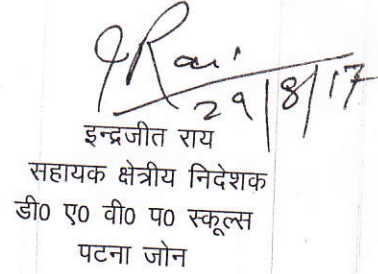 IRai
29/8/17
इन्द्रजीत राय
सहायक क्षेत्रीय निदेशक
डी० ए० वी० प० स्कूल्स
पटना जोन